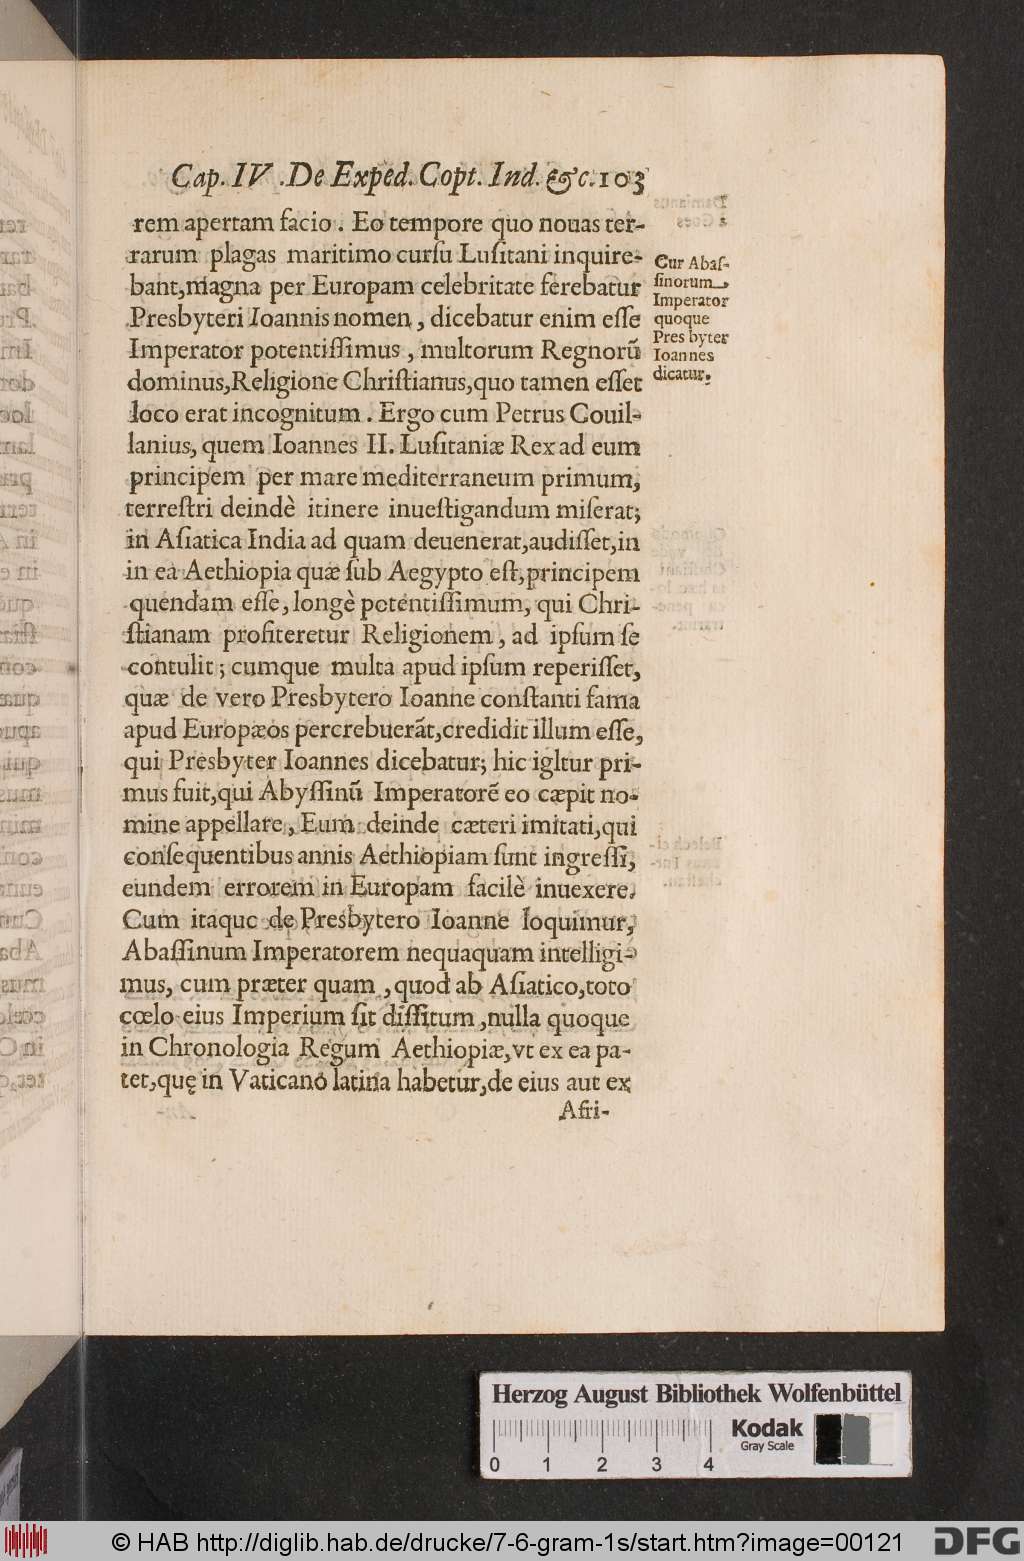 Cap. IV. De Exped. Copt. Ind. &c. 103
rem apertam facio. Eo tempore quo nouas ter-
rarum plagas maritimo curſu Luſitani inquire-
bant, magna per Europam celebritate ferebatur
Presbyteri Ioannis nomen, dicebatur enim eſſe
Imperator potentiſſimus, multorum Regnorũ
dominus, Religione Chriſtianus, quo tamen eſſet
loco erat incognitum. Ergo cum Petrus Couil-
lanius, quem Ioannes II. Luſitaniæ Rex ad eum
principem per mare mediterraneum primum,
terreſtri deindè itinere inueſtigandum miſerat;
in Aſiatica India ad quam deuenerat, audiſſet, in
in ea Aethiopia quæ ſub Aegypto eſt, principem
quendam eſſe, longè potentiſſimum, qui Chri-
ſtianam profiteretur Religionem, ad ipſum ſe
contulit; cumque multa apud ipſum reperiſſet,
quæ de vero Presbytero Ioanne conſtanti fama
apud Europæos percrebuerãt, credidit illum eſſe,
qui Presbyter Ioannes dicebatur; hic igItur pri-
mus fuit, qui Abyſſinũ Imperatorẽ eo cæpit no-
mine appellare, Eum deinde cæteri imitati, qui
conſequentibus annis Aethiopiam ſunt ingreſſi,
eundem errorem in Europam facilè inuexere.
Cum itaque de Presbytero Ioanne loquimur,
Abaſſinum Imperatorem nequaquam intelligi-
mus, cum præter quam, quod ab Aſiatico, toto
cœlo eius Imperium ſit diſſitum, nulla quoque
in Chronologia Regum Aethiopiæ, vt ex ea pa-
tet, quę in Vaticano latina habetur, de eius aut ex
Afri-
Cur Abaſ-
ſinorum
Imperator
quoque
Presbyter
Ioannes
dicatur.
Herzog August Bibliothek Wolfenbüttel
Kodak
Gray Scale
0 1 2 3 4
© HAB http://diglib.hab.de/drucke/7-6-gram-1s/start.htm?image=00121
DFG